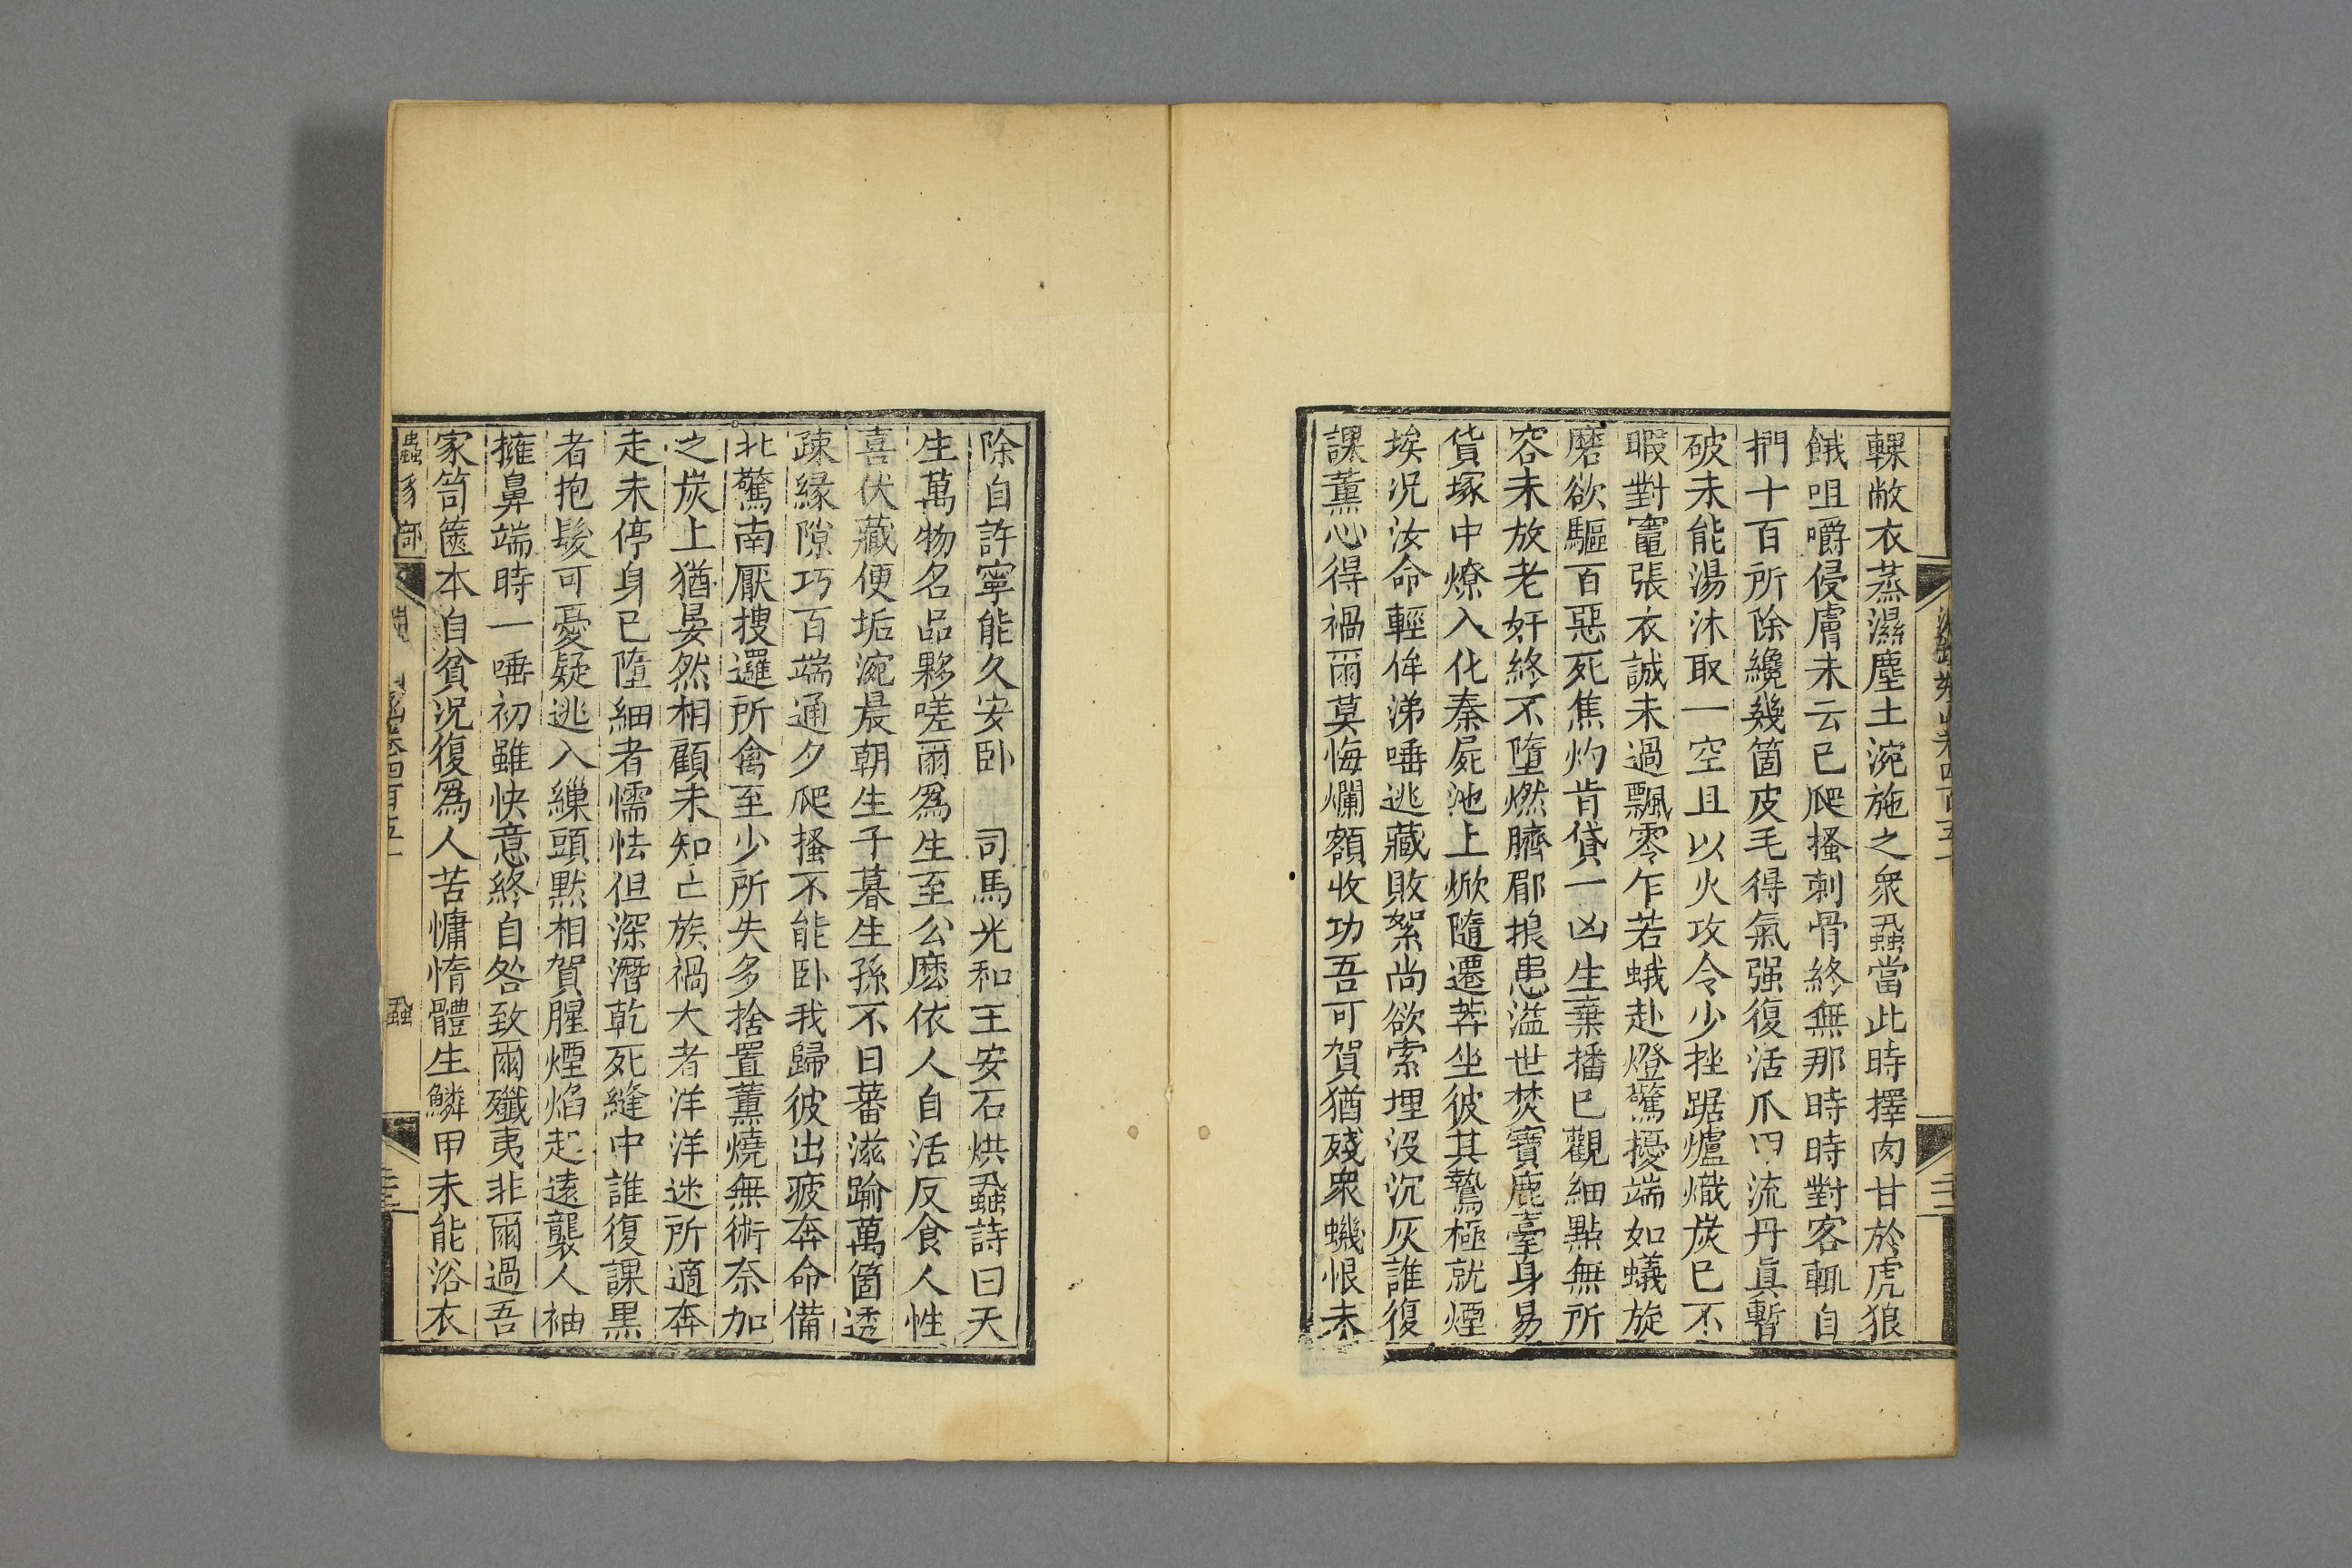 輠敝衣蒸濕塵土涴施之衆蝨當此時擇肉甘於虎狼
餓咀嚼侵膚未云已爬搔刺骨終無那時時對客輒自
捫十百所除纔幾箇皮毛得氣强復活爪甲流丹眞暫
破未能湯沐取一空且以火攻令少挫踞爐熾炭已不
暇對竈張衣誠未過飄零乍若蛾赴燈驚擾端如蟻旋
磨欲驅百惡死焦灼肯貸一凶生棄播已觀細黠無所
容未放老奸終不墮燃臍郿塢患溢世焚寶鹿臺身易
貨塚中燎入化秦屍池上焮隨遷莽坐彼其鷙極就煙
埃況汝命輕侔涕唾逃藏敗絮尚欲索埋沒沉灰誰復
課薰心得禍爾莫悔爛額收功吾可賀猶殘衆蟣恨未
除自許寧能久安卧　司馬光和王安石烘蝨詩曰天
生萬物名品夥嗟爾爲生至公麽依人自活反食人性
喜伏藏便垢涴晨朝生子暮生孫不日蕃滋踰萬箇透
疎緣隙巧百端通夕爬搔不能卧我歸彼出疲奔命備
北驚南厭搜邏所禽至少所失多捨置薰燒無術奈加
之炭上猶晏然相顧未知亡族禍大者洋洋迷所適奔
走未停身已墮細者懦怯但深潛乾死縫中誰復課黒
者抱髮可憂疑逃入繅頭默相賀腥煙焰起遠襲人袖
擁鼻端時一唾初雖快意終自咎致爾殲夷非爾過吾
家笥篋本自貧況復爲人苦慵惰體生鱗甲未能浴衣
蟲豸部
卷四百五十
蝨